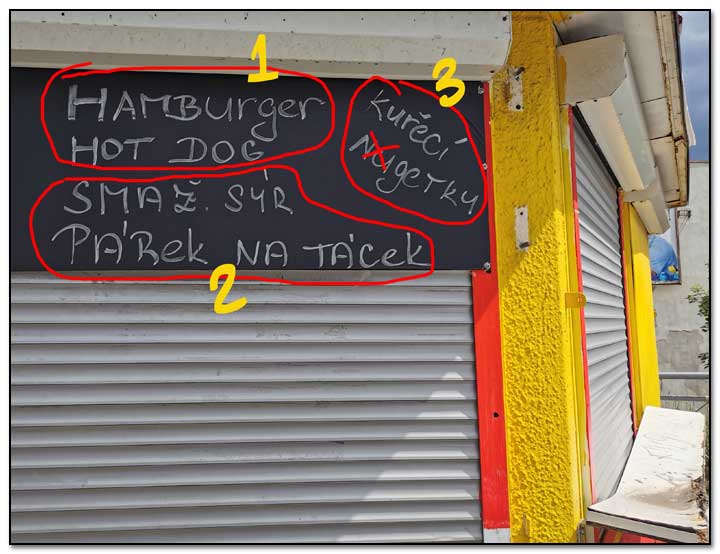 1
HAMBurger
HOT DOG
SMAŽ. SÝR
PÁRek NA TÁCek
2
3
kuřecí
NugeTky